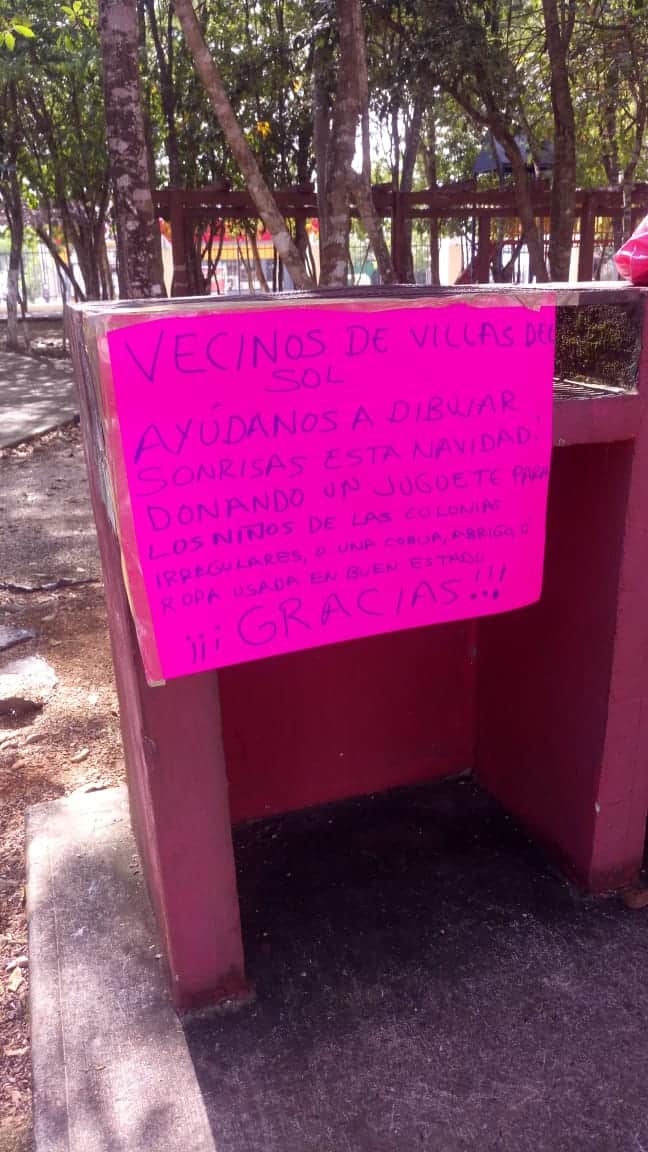 VECINOS DE VILLAS DEL
SOL
AYÚDANOS A DIBUJAR
SONRISAS ESTA NAVIDAD.
DONANDO UN JUGUETE PARA
LOS NIÑOS DE LAS COLONIAS
IRREGULARES, O UNA COBIJA, ABRIGO, Ó
ROPA USADA EN BUEN ESTADO
¡¡¡GRACIAS!!!